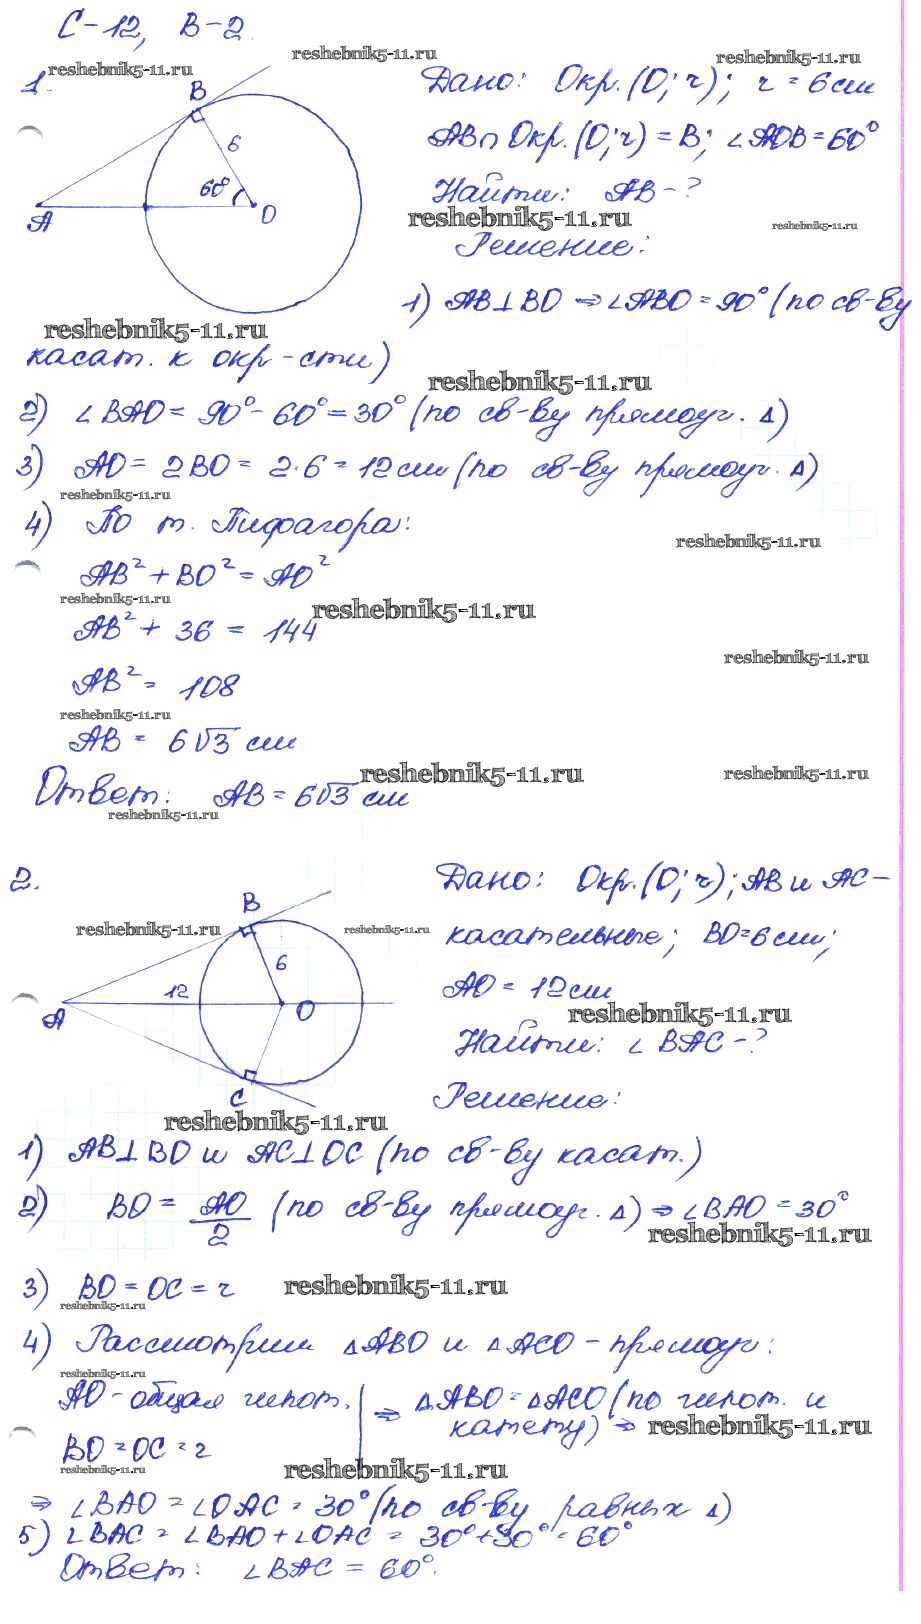 С-12, В-2.
reshebnik5-11.ru
reshebnik5-11.ru
reshebnik5-11.ru
1.
B
6
60°
A
O
Дано: Окр.(O; r); r = 6 см
AB∩Окр.(O; r) = B; ∠AOB = 60°
Найти: AB - ?
reshebnik5-11.ru
reshebnik5-11.ru
Решение:
1) AB⊥BO ⇒ ∠ABO = 90° (по св-ву
reshebnik5-11.ru
касат. к окр-сти)
reshebnik5-11.ru
2) ∠BAO = 90° - 60° = 30° (по св-ву прямоуг. Δ)
3) AO = 2BO = 2·6 = 12 см (по св-ву прямоуг. Δ)
reshebnik5-11.ru
4) По т. Пифагора:
reshebnik5-11.ru
AB² + BO² = AO²
reshebnik5-11.ru
reshebnik5-11.ru
AB² + 36 = 144
reshebnik5-11.ru
AB² = 108
reshebnik5-11.ru
AB = 6√3 см
reshebnik5-11.ru
reshebnik5-11.ru
Ответ: AB = 6√3 см
reshebnik5-11.ru
2.
B
reshebnik5-11.ru
reshebnik5-11.ru
6
12
A
O
C
Дано: Окр.(O; r); AB и AC -
касательные; BO = 6 см;
AO = 12 см
reshebnik5-11.ru
Найти: ∠BAC - ?
Решение:
reshebnik5-11.ru
1) AB⊥BO и AC⊥OC (по св-ву касат.)
2) BO = AO/2 (по св-ву прямоуг. Δ) ⇒ ∠BAO = 30°
reshebnik5-11.ru
3) BO = OC = r
reshebnik5-11.ru
reshebnik5-11.ru
4) Рассмотрим ΔABO и ΔACO - прямоуг:
reshebnik5-11.ru
AO - общая гипот. ⇒ ΔABO = ΔACO (по гипот. и
катету) ⇒
reshebnik5-11.ru
BO = OC = r
reshebnik5-11.ru
reshebnik5-11.ru
⇒ ∠BAO = ∠OAC = 30° (по св-ву равных Δ)
5) ∠BAC = ∠BAO + ∠OAC = 30° + 30° = 60°
Ответ: ∠BAC = 60°.